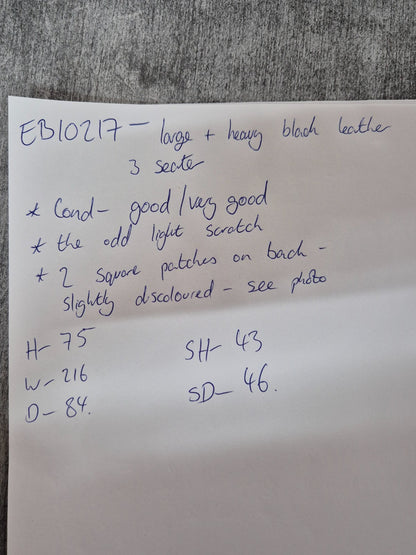 EB10217 - large + heavy black leather
3 seater
* Cond - good / very good
* the odd light scratch
* 2 square patches on back -
slightly discoloured - see photo
H - 75
W - 216
D - 84.
SH - 43
SD - 46.